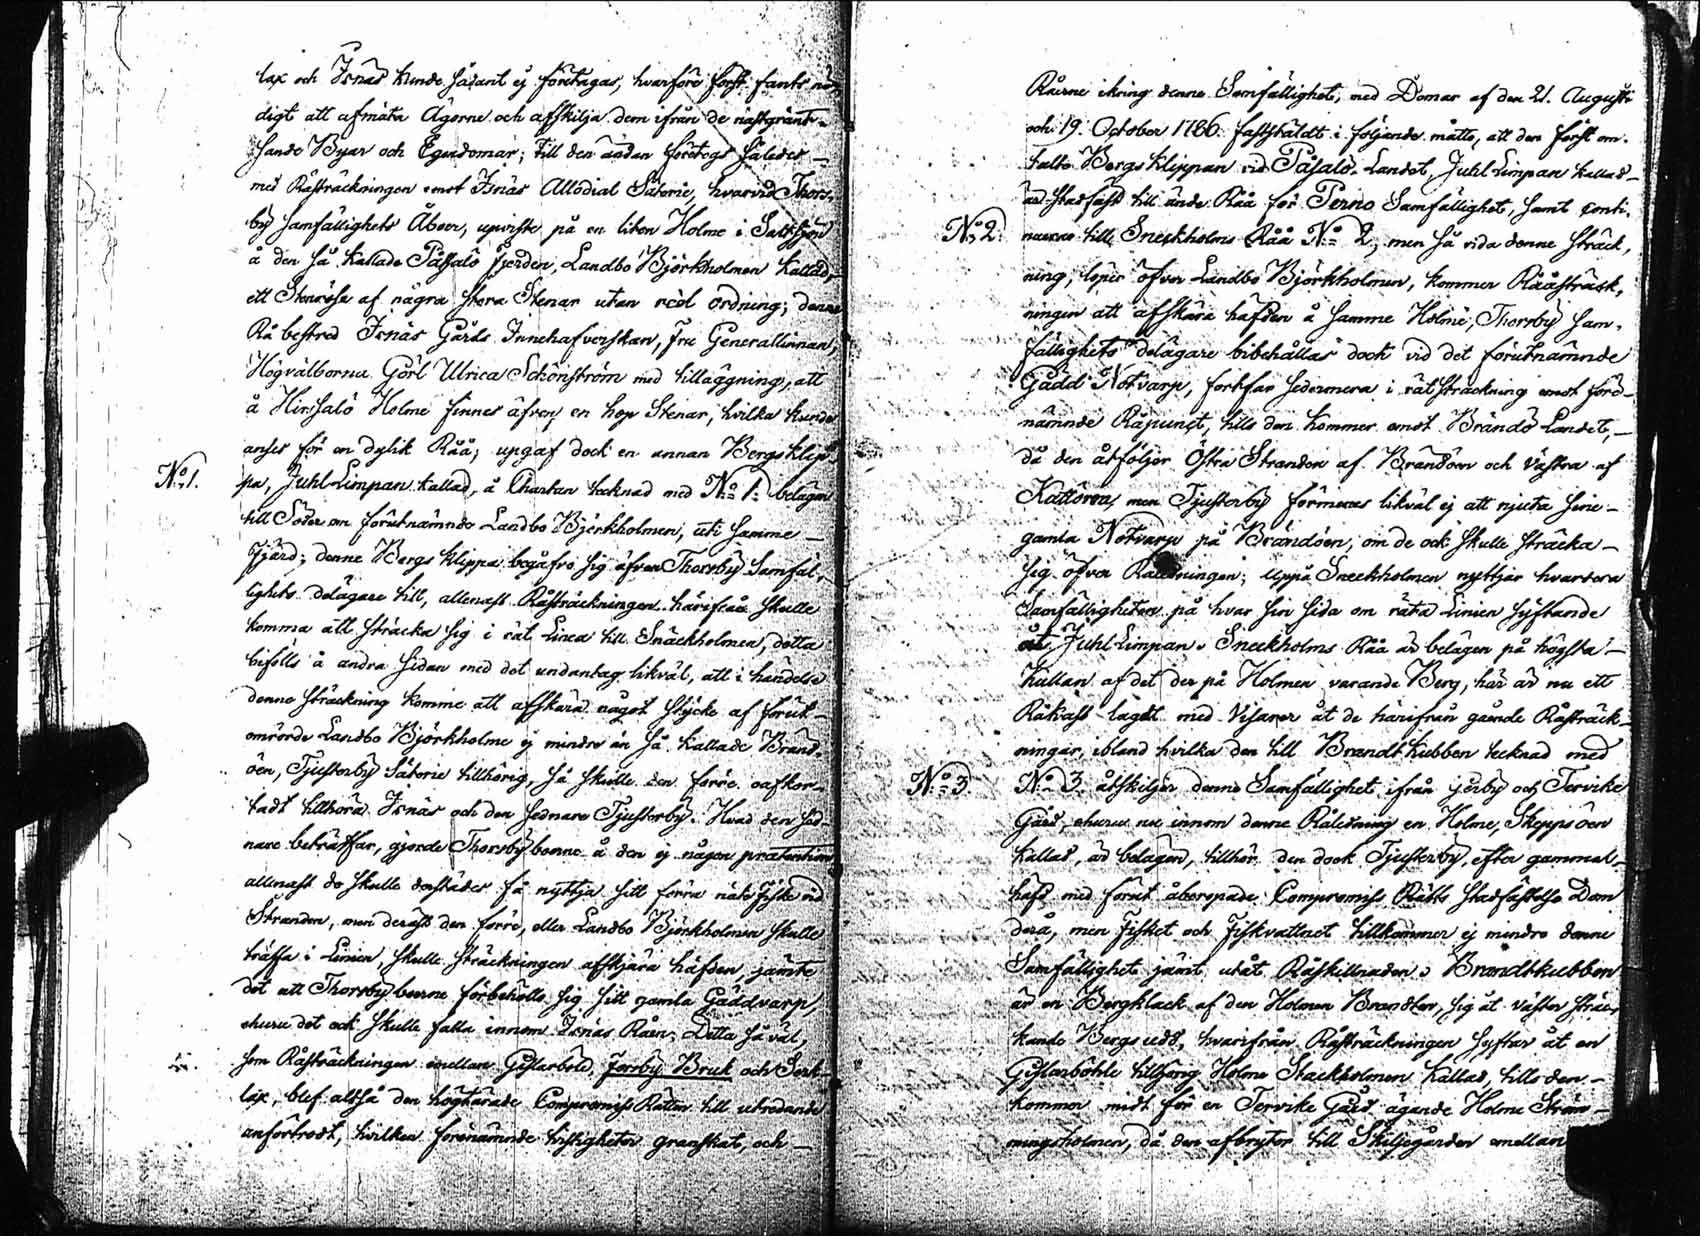 lax och Isnäs kunde sådant ej företagas, hvarföre först fants nö-
digt att afmäta Ägorne och afskilja dem ifrån de nästgränt-
sande Byar och Egendomar; till den ändan företogs således
med Råsträckningen emot Isnäs Allodial Säterie, hvarvid Thors-
by Samfällighets Åboer, upviste på en liten Holme i Saltsjön
å den så kallade Påsalö fjerden, Landbo Björkholmen kallad,
ett Stenröse af några stora Stenar utan ordning; denne
Rå bestred Isnäs Gårds Innehafverskan, Fru Generallinnan,
Högvälborna Görl Ulrica Schönström med tilläggning, att
å Hirsalö Holme finnes äfven en hop Stenar, hvilka kunde
anses för en dylik Råå; upgaf dock en annan Bergsklip-
No 1. pa, Juhl-Limpan kallad, å Chartan tecknad med No 1. belägen
till Söder om förutnämnde Landbo Björkholmen, uti samme
Fjärd; denne Bergs klippa begåfvo sig äfven Thorsby Samfäl-
lighets delägare till, allenast Råsträckningen härifrån skulle
komma att sträcka sig i rät Linea till Snäckholmen, detta
bifölls å andra sidan med det undantag likväl, att i händelse
denne sträckning komme att afskära något stycke af förut-
omrörde Landbo Björkholme ej mindre än så kallade Bränd-
öen, Tjusterby Säterie tillhörig, så skulle den förre oafkor-
tadt tillhöra Isnäs och den sednare Tjusterby. Hvad den sed-
nare beträffar, gjorde Thorsbyboerne å den ej någon prætention
allenast de skulle derstädes få nyttja sitt förra nät fiske vid
Stranden, men derest den förre, eller Landbo Björkholmen skulle
träffa i Linien, skulle sträckningen afskjära häfden, jämte
det att Thorsby boerne förbehöllo sig sitt gamla Gäddvarp,
ehuru det ock skulle falla innom Isnäs Råen. Detta så väl,
som Råsträckningen emellan Gislarböle, Forsby Bruk och Serk-
lax, blef altså den högtärade Compromiss Rätten till utredande
anförtrodt, hvilken förenämnde tvistigheter granskat, och
Råerne ikring denne Samfällighet, med Domar af den 21. Augusti
och 19. October 1786. fastställdt i följande måtto, att den först om-
talte Bergs klippan vid Påsalö Landet, Juhl Limpan kallad
är stadfäst till ände Råå för Perno Samfällighet, samt conti-
No 2. nueras till Sneckholms Råå No 2, men så vida denne sträck-
ning, löper öfver Landbo Björkholmen, kommer Rååsträck-
ningen att afskära häfden å samme Holme, Thorsby Sam-
fällighets delägare bibehållas dock vid det förutnämnde
Gädd Notvarp, fortfar sedermera i rät sträckning emot förb-
nämnde Råpunct, tills den kommer emot Brändö Landet,
då den åtföljer Östra Stranden af Brändöen och Västra af
Kattören, men Tjusterby förmenas likväl ej att njuta sine
gamla Notvarp på Brändöen, om de ock skulle sträcka
sig öfver Råledningen; uppå Sneckholmen nyttjar hvardera
Samfälligheten på hvar sin sida om räta Linien syftande
åt Juhl Limpan. Sneckholms Råå är belägen på högsta
Kullan af det der på Holmen varande Berg, här är nu ett
Råkast lagdt med Visarer åt de härifrån gående Råsträck-
ningar, ibland hvilka den till Brandt kubben tecknad med
No 3. No 3. åtskiljer denne Samfällighet ifrån och Tervike
Gård, ehuru nu innom denne Råledning en Holme, Skeppsöen
kallad, är belägen, tillhör den dock Tjusterby, efter gammal
häfd med förut åberopade Compromiss Rätts stadfästelse Dom
derå, men Fisket och Fiskvattnet tillkommer ej mindre denne
Samfällighet jämt utåt Råskillnaden. Brandtkubben
är en Bergklack af den Holmen Brandten, sig åt väster sträc-
kande Bergs udd, hvarifrån Råsträckningen syftar åt en
Gislarböhle tillhörig Holme Stackholmen kallad, tills den
kommer midt för en Tervike Gård ägande Holme Ström-
mingsholmen, då den afbryter till Skiljegården emellan